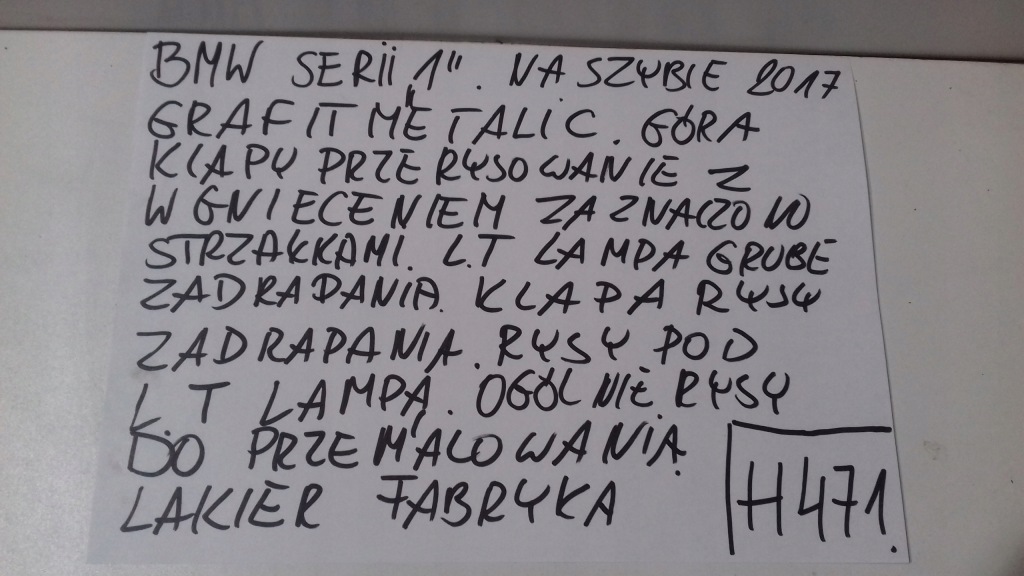 BMW SERII „1". NA SZYBIE 2017
GRAFIT METALIC. GÓRA
KLAPY PRZERYSOWANIE Z
WGNIECENIEM ZAZNACZONO
STRZAKKAMI. L.T LAMPA GRUBE
ZADRAPANIA. KLAPA RYSY
ZADRAPANIA. RYSY POD
L T LAMPĄ. OGÓLNIE RYSY
DO PRZEMALOWANIA.
LAKIER FABRYKA
H471.